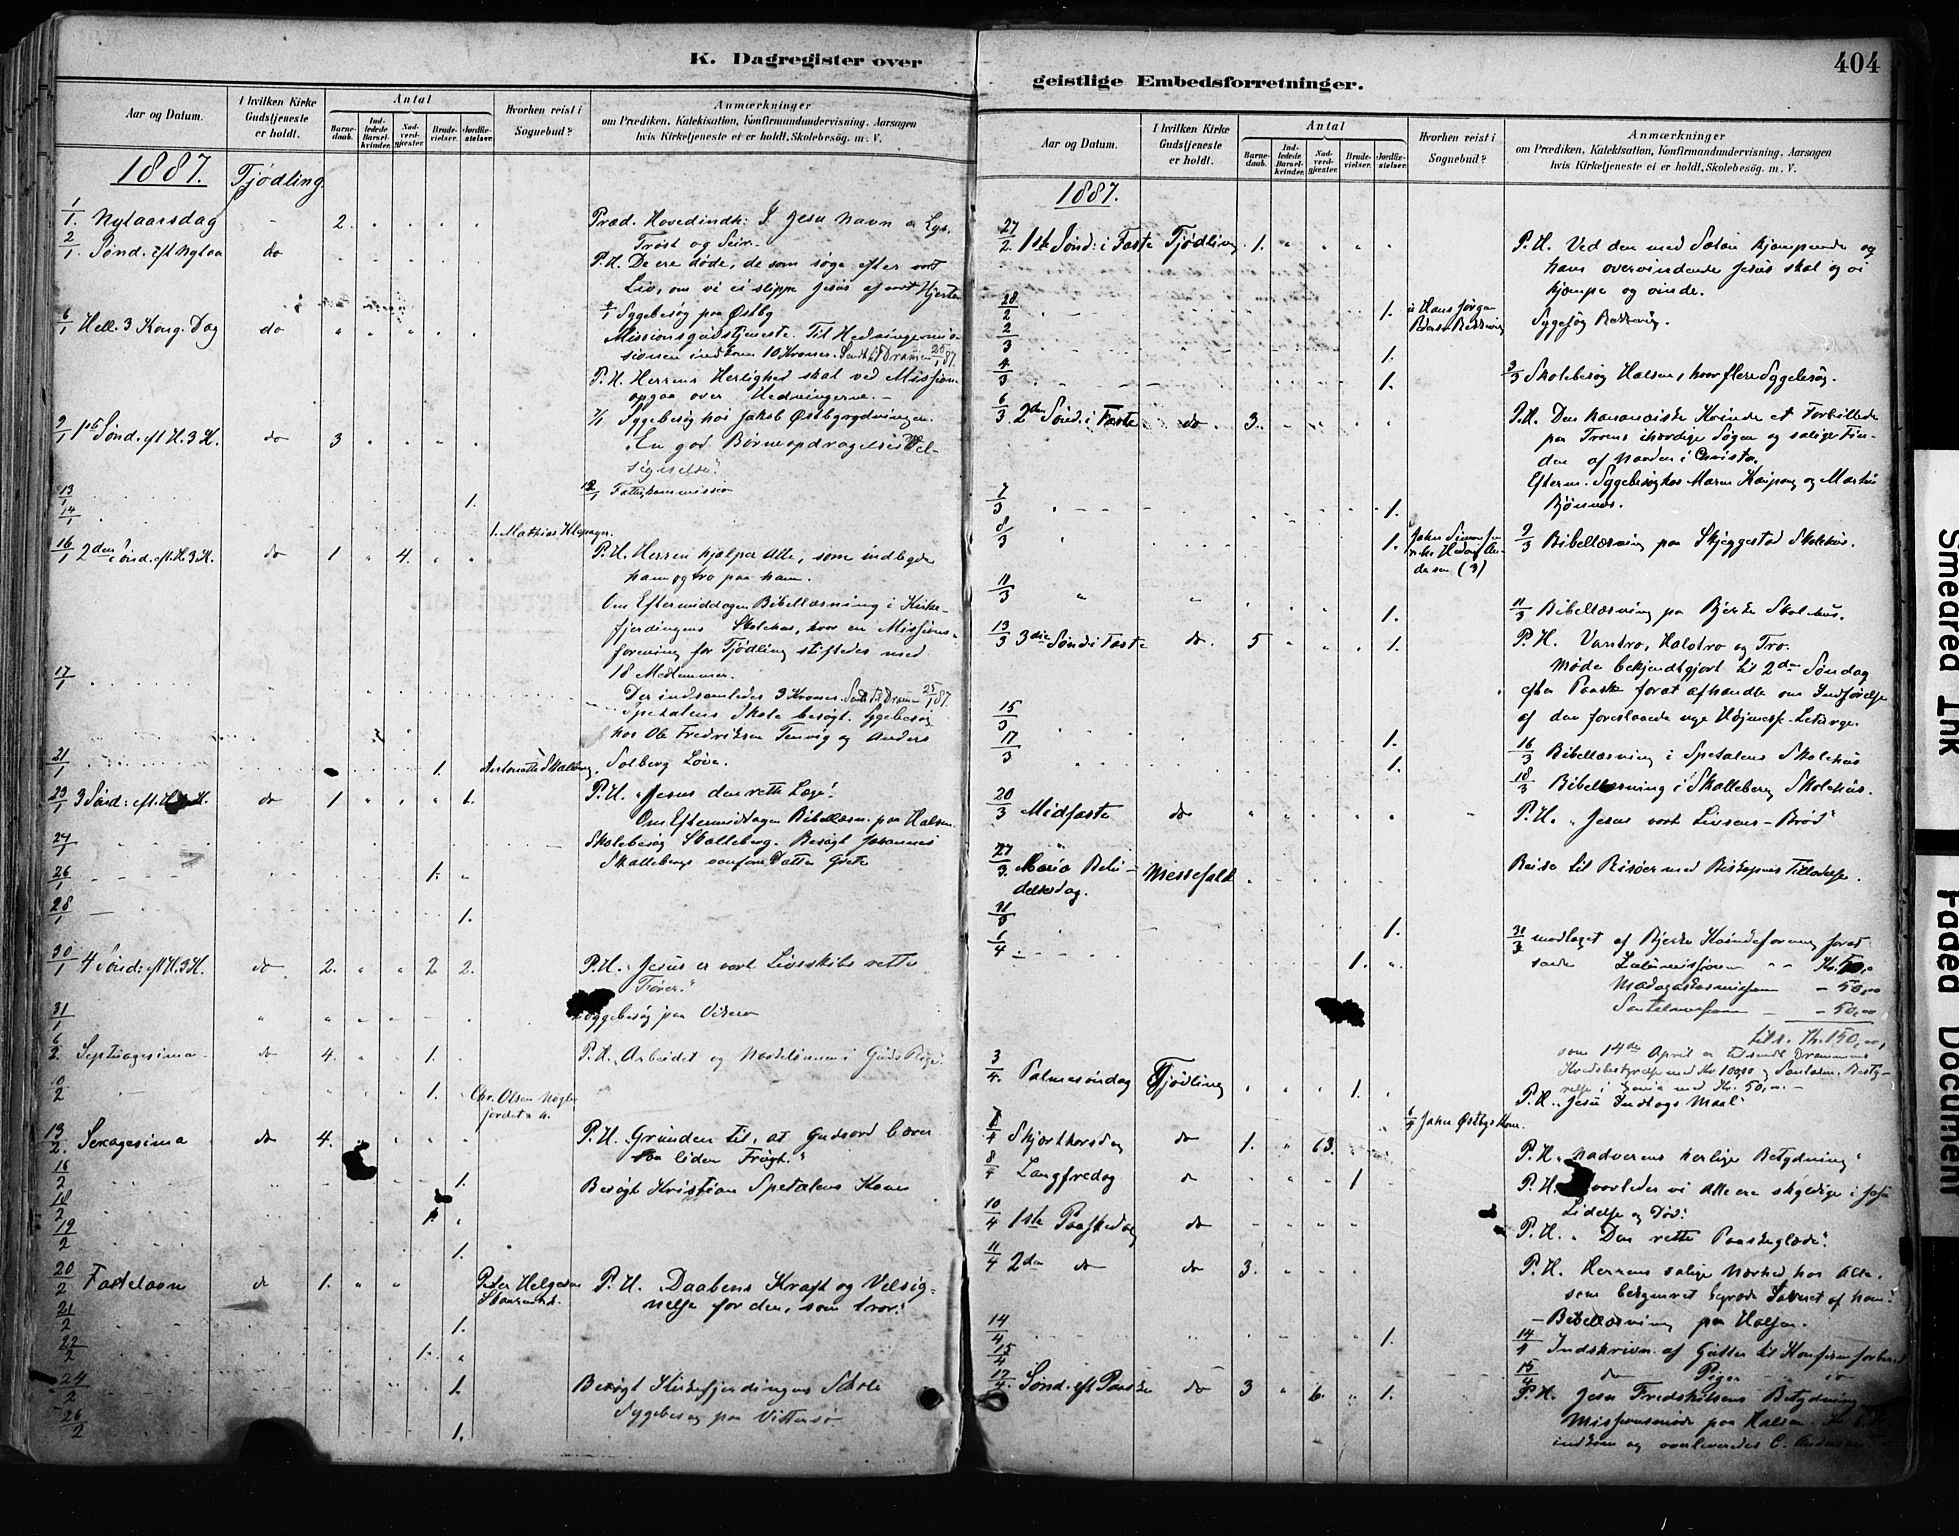 K. Dagregister over
Aar og Datum.
I hvilken Kirke Gudstjeneste er holdt.
Antal
Barnedaab.
Indledede Barselkvinder.
Nadverdgjester.
Brudevielser.
Jordfæstelser.
Hvorhen reist i Sognebud?
Anmærkninger
om Prædiken, Katekisation, Konfirmandundervisning, Aarsagen
hvis Kirketjeneste ei er holdt, Skolebesøg. m. V.
1887. Tjødling
1/1. Nytaarsdag 2. Præd. Hovedindh: I Jesu Navn
Trøst og Seir.
2/1. Sønd. eft Nytaar do P.H. De ere døde, de som søge efter vort
Liv, om vi ei slippe Jesus af vort Hjerte
Sygebesøg paa Østby
6/1 Hell. 3 Kong. Dag do Missionsgudstjeneste. Til Hedningemis-
sionen indkom 10 Kroner. Sendt til Drammen 25/1 87.
P.H. Herrens Herlighed skal ved Missionen
opgaa over Hedningerne.
7/1 Sygebesøg hos Jakob Østbyrydningen.
9/1 1ste Sønd. eft H. 3 K. do 3 En god Børneopdragelses Vel-
signelse.
13/1 1. 12/1 Fattigkommission
14/1 1. Mathias Klepager.
16/1 2den Sønd. eft. H. 3 K. do 1 4. P.H. Herren hjælper Alle, som indbyde
ham og tro paa ham.
Om Eftermiddagen Bibellæsning i Kirke-
fjerdingens Skolehus, hvor en Missions-
forening for Tjødling stiftedes med
18 Medlemmer.
17/1 Der indsamledes 3 Kroner. Sendt til Drammen 25/1 87.
Spetalens Skole besøgt. Sygebesøg
hos Ole Fredriksen Tenvig og Anders
21/1 1. Solberg Løve.
23/1 3 Sønd: eft. H. 3 K. do 1 1. P.H. "Jesus den rette Læge".
Om Eftermiddagen Bibellæsn. paa Halsen.
24/1 Skolebesøg Skalleberg. Besøgt Johannes
Skallebergs Datter Grete
26/1 1.
28/1 1.
30/1 4 Sønd: eft H. 3 K. do 2. 2. 2. P.H. "Jesus er vort Livsskibs rette
Fører."
31/1 Sygebesøg paa
6/2. Septuagesima do 4. 1. P.H. Arbeidet og Naadelønnen i Guds Rige.
10/2 1. Chr. Olsen
13/2. Sexagesima do 4. P.H. Grunden til, at Guds ord bærer
saa liden Frugt."
16/2 1. Besøgt Kristian Spetalens Kone
18/2 1.
19/2 1.
20/2 Fastelavn do 1. Peter Helgesen P.H. Daabens Kraft og Velsig-
nelse for den, som tror."
21/2 1.
22/2 1.
24/2 1. Besøgt Kirkefjerdingens Skole
Sygebesøg paa Vittersø
26/2 1.
geistlige Embedsforretninger.
404
Aar og Datum.
I hvilken Kirke Gudstjeneste er holdt.
Antal
Barnedaab.
Indledede Barselkvinder.
Nadverdgjester.
Brudevielser.
Jordfæstelser.
Hvorhen reist i Sognebud?
Anmærkninger
om Prædiken, Katekisation, Konfirmandundervisning, Aarsagen
hvis Kirketjeneste ei er holdt, Skolebesøg. m. V.
1887.
27/2. 1ste Sønd: i Faste Tjødling 1. P.H. Ved den med Satan kjæmpende og
ham overvindende Jesus skal og vi
kjæmpe og vinde.
28/2 1. Hans Jørgen Sygesøg
2/3 1.
4/3 1. 3/3 Skolebesøg Halsen, hvor flere Sygebesøg.
6/3 2den Sønd: i Faste do 3. P.H. Den kananæiske Kvinde et Forbillede
paa Troens ihærdige Søgen og salige Fin-
den af Naaden i Christo.
Efterm. Sygebesøg hos Maren Kaupang og Martin
7/3 1. Bjønnes.
8/3 1. 9/3 Bibellæsning paa Skjeggestad Skolehus.
11/3 1. 11/3 Bibellæsning paa Bjerke Skolehus.
13/3 3die Sønd i Faste do 5 1. P.H. Vantro, Halvtro og Tro.
Møde bekjendtgjort til 2den Søndag
efter Paaske forat afhandle om Indførelse
af den foreslaaede nye Høimesse-Liturgi.
15/3 1. 16/3 Bibellæsning i Spetalens Skolehus
17/3 1. 18/3 Bibellæsning i Skalleberg Skolehus.
20/3 Midfaste do P.H. "Jesus vort Livsens-Brød"
27/3. Mariæ Bebu- Messefald Reise til Risøer med Biskopens Tilladelse.
delsesdag.
1.
1/4 1. 31/3 modtaget af Bjerke Kvindeforening
Kr. 50,00
Madagaskarmissionen - 50,00
Santalmissionen - 50,00
Kr. 150,00,
som 14de April er tilsendt Drammens
Kredsbestyrelse med Kr 100,00 og Santalm. Besty-
relse med Kr. 50,00.
3/4. Palmesøndag Tjødling 1. P.H. "Jesu Indtogs Maal"
6/4 John Østbys Kone.
7/4 Skjærthorsdag do 1. 63. P.H. "Nadverens herlige Betydning"
8/4 Langfredag do 1 P.H. Hvorledes vi Alle ere skyldige i Jesu
Lidelse og Død."
10/4 1ste Paaskedag do P.H. "Den rette Paaskeglæde".
11/4 2den do do 3. P.H. Herrens salige Nærhed hos Alle,
som Savnet af ham."
- Bibellæsning paa Halsen.
14/4 1. 14/4 Indskrivn. af Gutter til Konfirmforbered
15/4 15/4 do Piger do
17/4. Sønd. eft Paaske do 3 6. 1. P.H. Jesu Fredshilsens Betydning
Missionsmøde paa Halsen.
indkom og overleveredes C. Andersen.
Smeared Ink
Faded Document